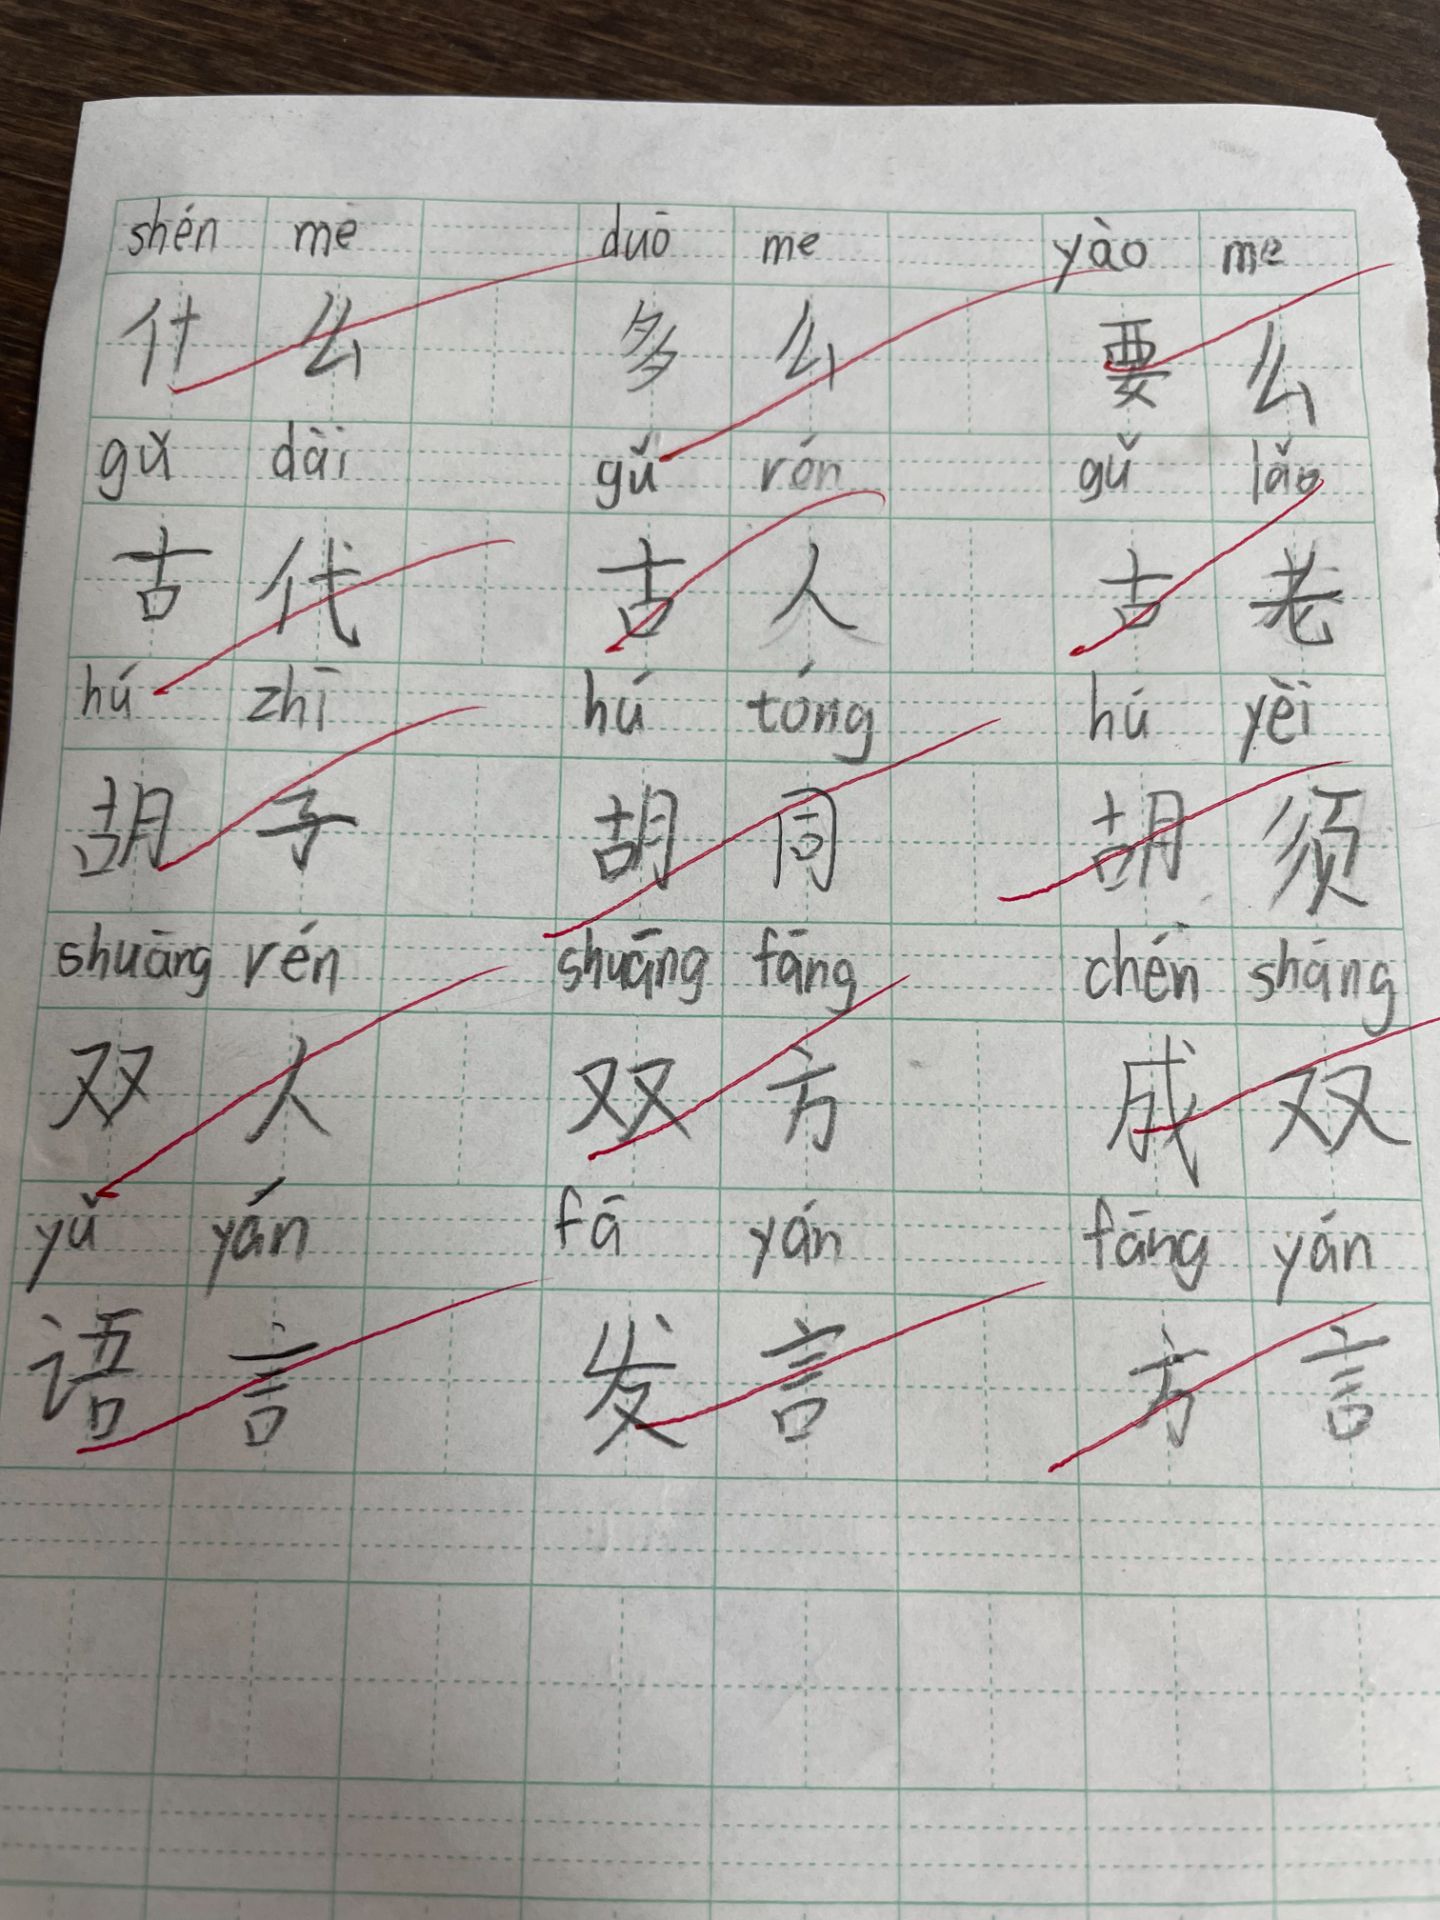 shén me duō me yào me
什么 多么 要么
gǔ dài gǔ rén gǔ lǎo
古代 古人 古老
hú zhī hú tóng hú yèi
胡子 胡同 胡须
shuāng rén shuāng fāng chén shāng
双人 双方 成双
yǔ yán fā yán fāng yán
语言 发言 方言